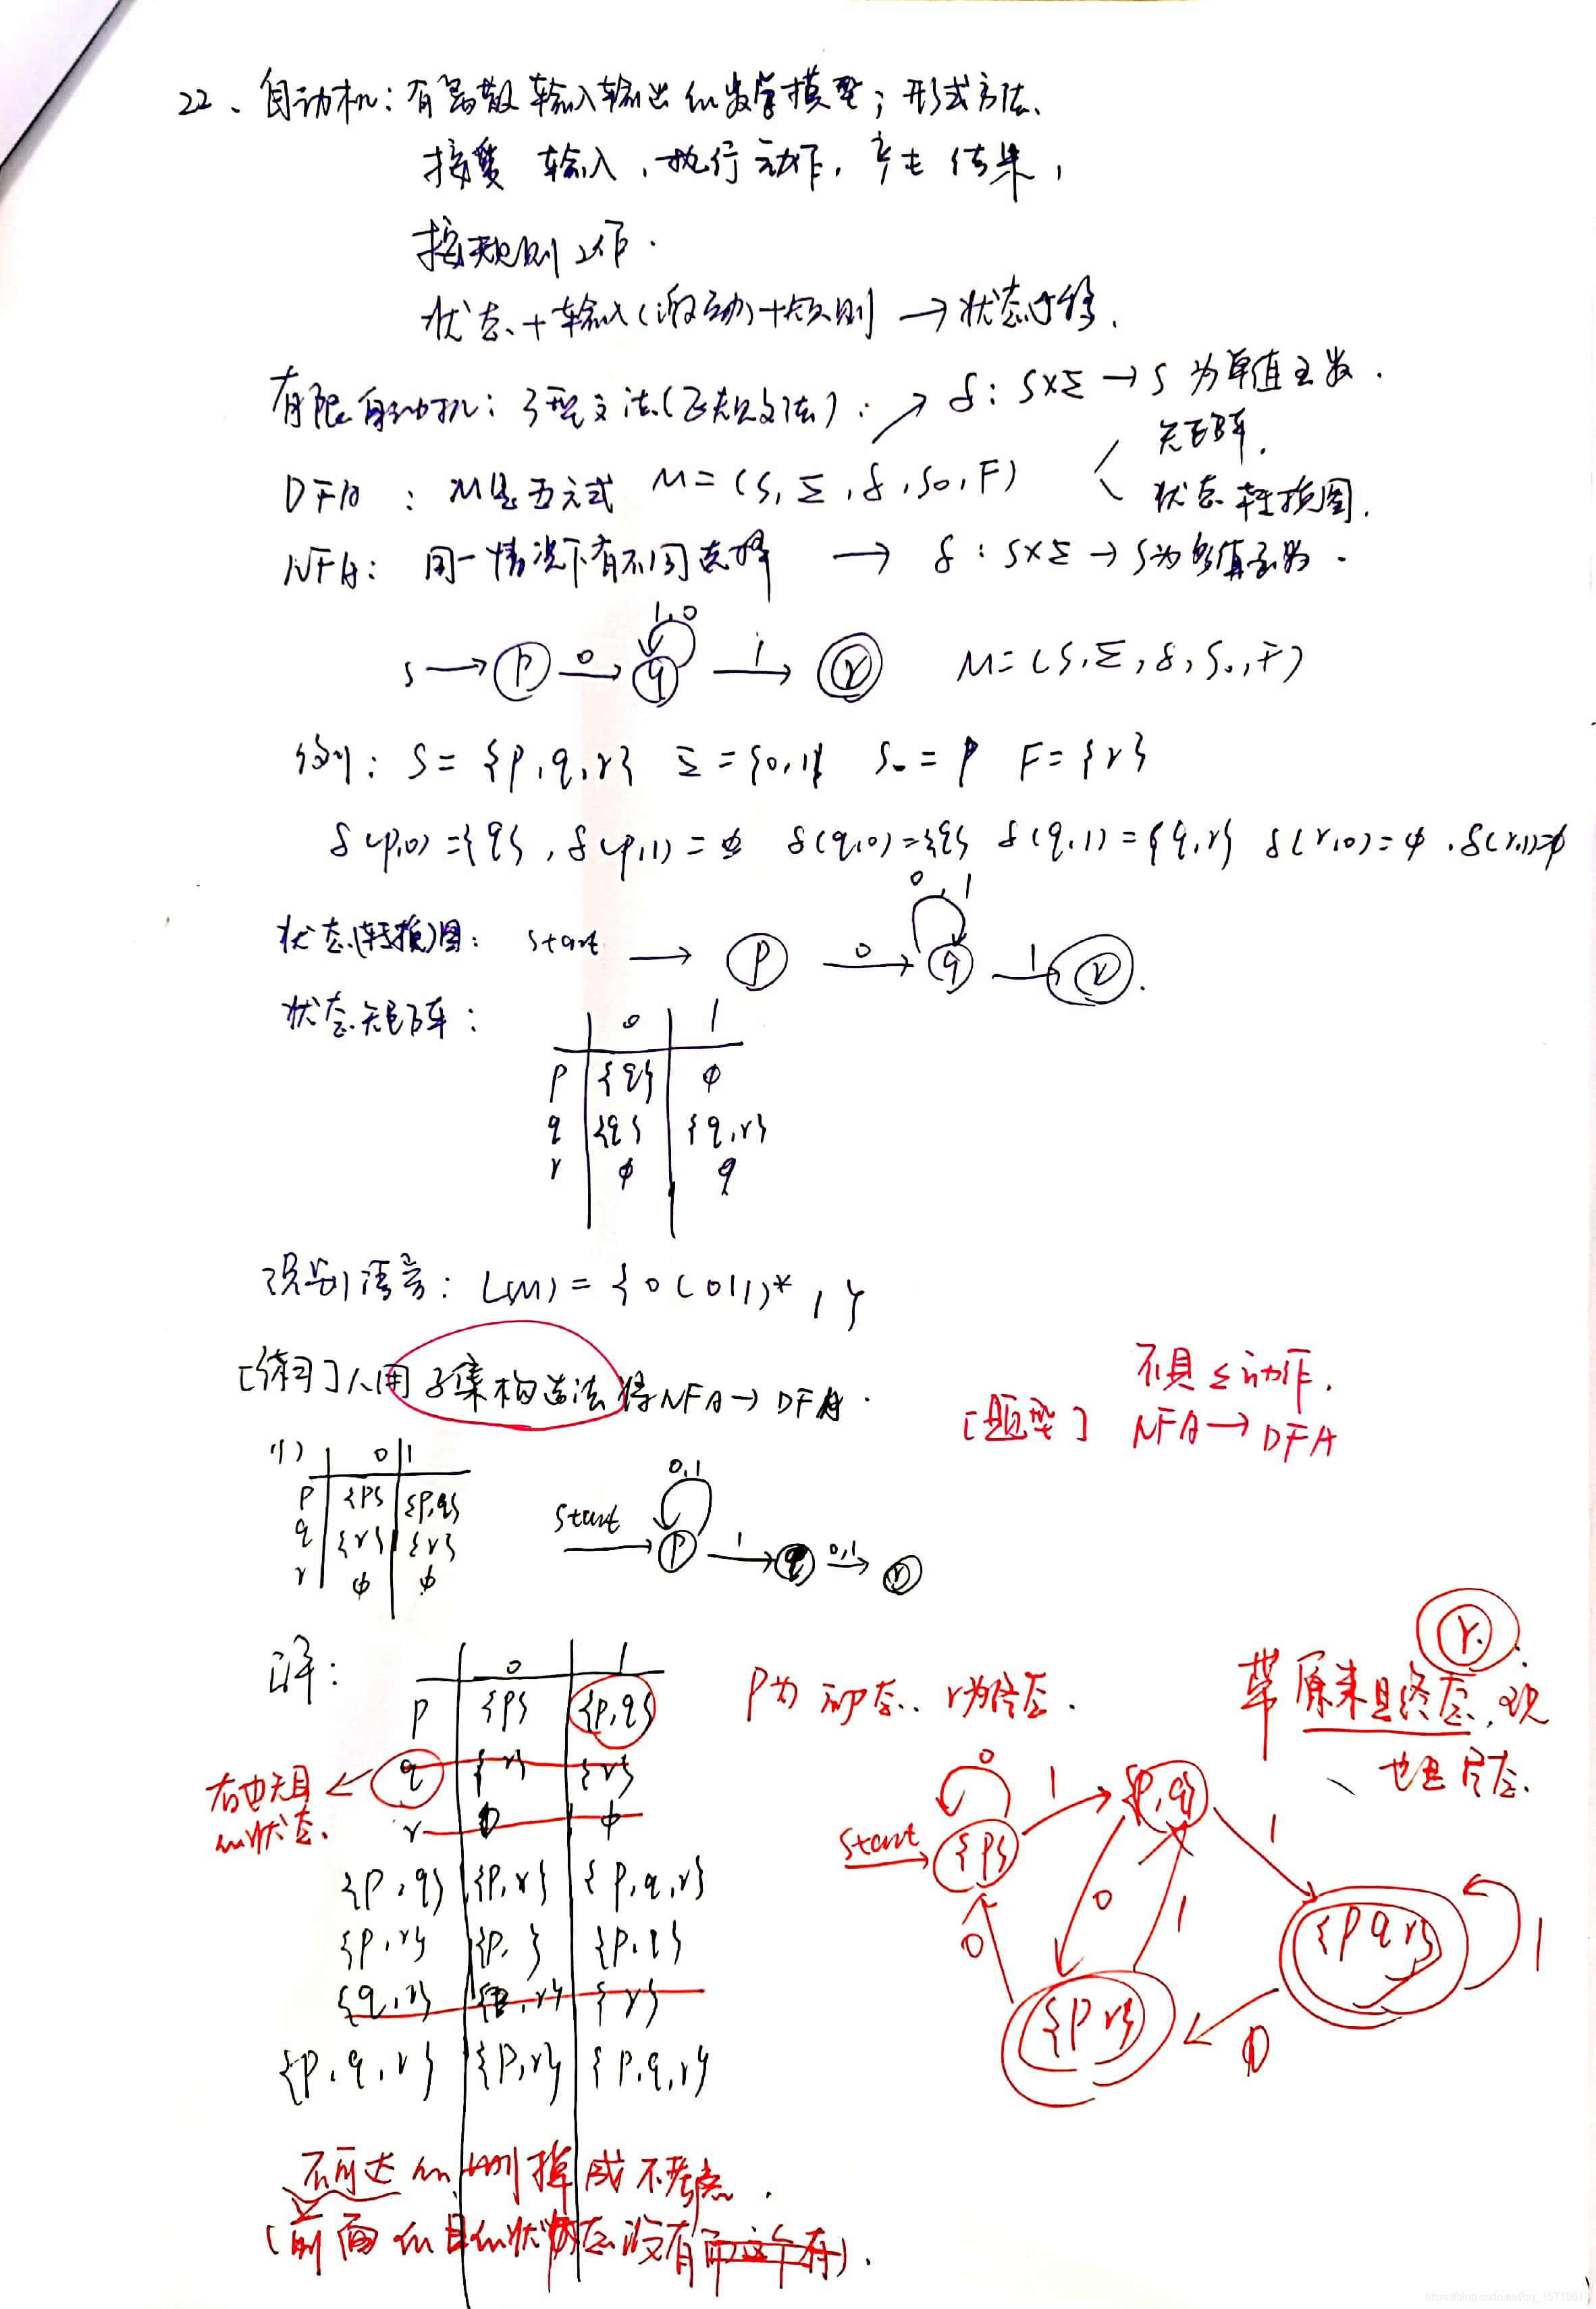 22、自动机：有离散输入输出的数学模型；形式方法、
接受 输入，执行动作，产生 结果，
按规则工作.
状态+输入(激励)+规则 → 状态迁移.
有限自动机：3型文法(正规文法)： ↗ δ：S×Σ → S 为单值函数.
DFA ： M是五元式 M=(S, Σ, δ, S₀, F) 〈 矩阵.
状态转换图.
NFA： 同一情况下有不同选择 → δ：S×Σ → S为多值函数.
1,0
s → p 0 → q 1 → r M=(S, Σ, δ, S₀, F)
例：S={p,q,r} Σ={0,1} S₀=p F={r}
δ(p,0)={q}, δ(p,1)=φ δ(q,0)={q} δ(q,1)={q,r} δ(r,0)=φ . δ(r,1)=φ
0,1
状态(转换)图： start → p 0 → q 1 → r.
状态矩阵：
0 1
p {q} φ
q {q} {q,r}
r φ φ
识别语言：L(M)={0(0|1)*1}
[练习]1.用子集构造法 将NFA→DFA.
[题型] 不具ε动作.
NFA→DFA
(1) 0 1
p {p} {p,q}
q {r} {r}
r φ φ
0,1
start → p 1 → q 0,1 → r
解：
0 1
p {p} {p,q}
q {r} {r}
r φ φ
{p,q} {p,r} {p,q,r}
{p,r} {p, } {p,q}
{q,r} {r} {r}
{p,q,r} {p,r} {p,q,r}
P为初态.. r为终态.
r.
原来是终态,现
也是终态.
右边无且
的状态.
start {p} 0 1 {p,q} 1
0 0 1 {p q r} 1
{p r} 0
不可达的删掉或不考虑.
(前面的 状态没有
https://blog.csdn.net/qq_1571961